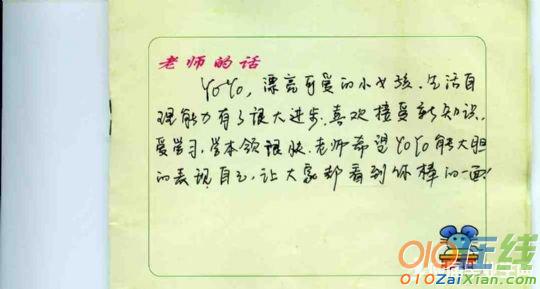 老师的话
YoYo，漂亮可爱的小女孩。生活自
理能力有了很大进步，喜欢接受新知识，
爱学习，学本领很快。老师希望YoYo能大胆
的表现自己，让大家都看到你棒的一面！
010在线
010ZaiXian.com